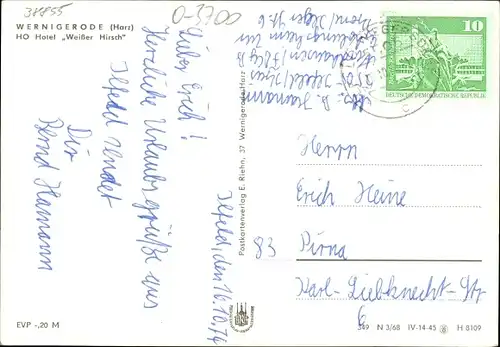 38855
O-3700
WERNIGERODE (Harz)
HO Hotel „Weißer Hirsch"
Ilfeld, den 16.10.74
Lieber Erich!
Herzliche Urlaubsgrüße aus
Ilfeld sendet
Dir
Bernd Hamann
Abs.: B. Hamann
Ilfeld
Postkartenverlag E. Riehn, 37 Wernigerode/Harz
10
DEUTSCHE DEMOKRATISCHE REPUBLIK
Herrn
Erich Heine
83 Pirna
Karl-Liebknecht-Str
6
EVP -,20 M
349 N 3/68 IV-14-45 H 8109